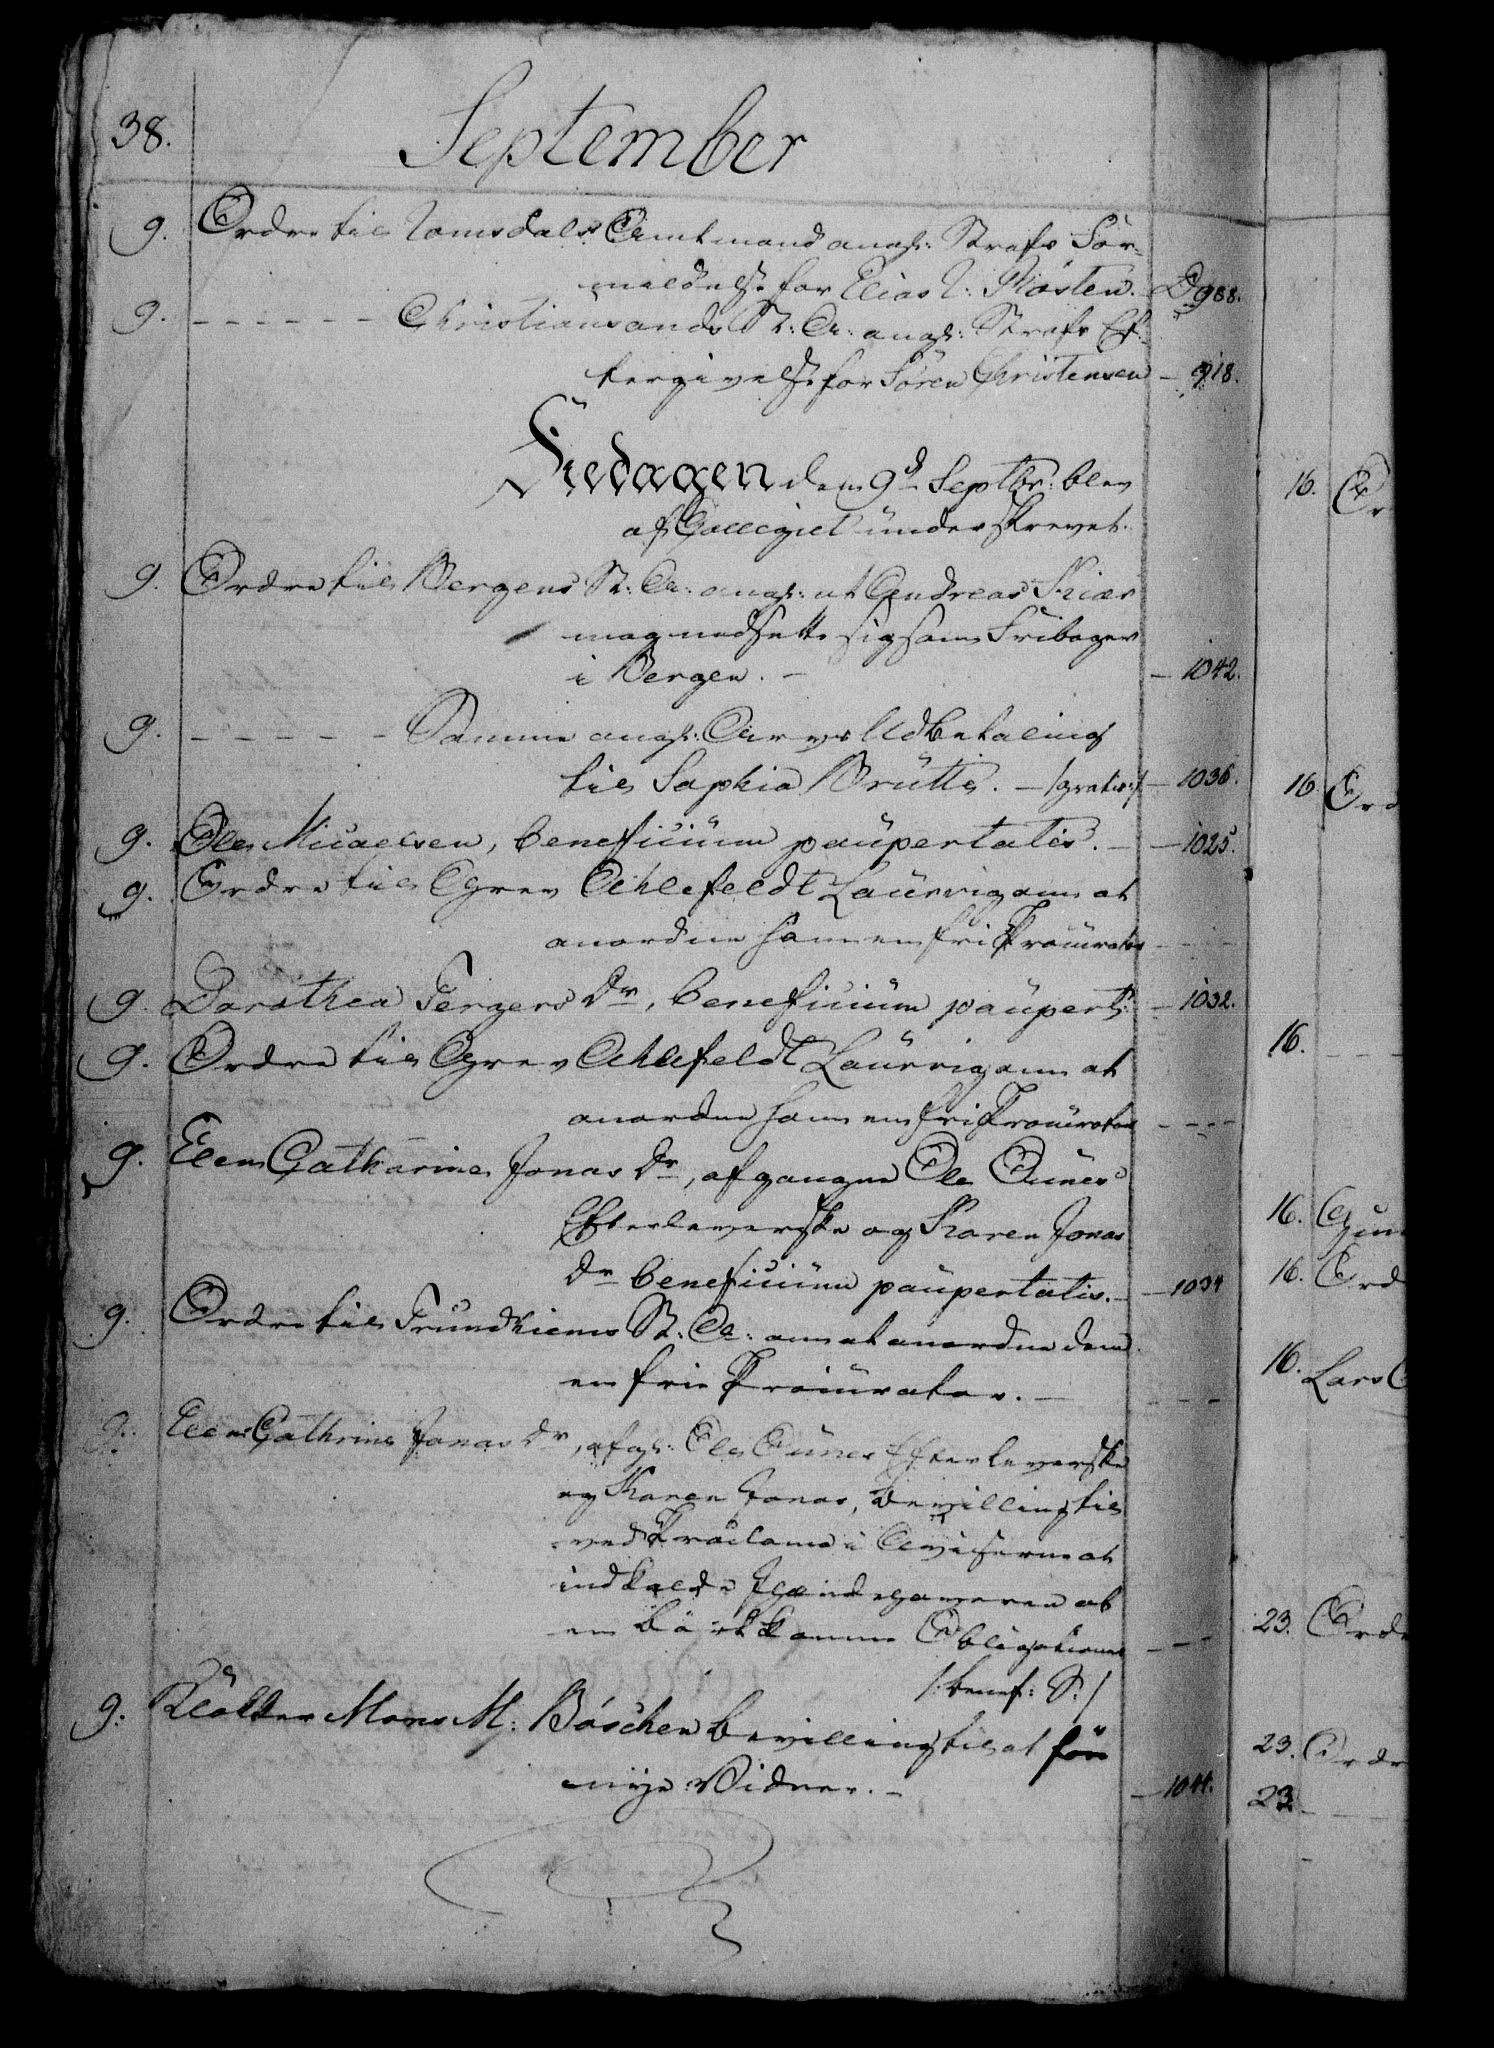 38.
September
9. Ordre til Romsdals Amtmand angl: Strafs For-
mildelse for Elias I: Flosten. D 988.
9. - - - - - - Christiansands St: A: angl: Strafs Ef-
tergivelse for Søren Christensen - 918.
Fredagen den 9d Septbr: blev
af Collegiet underskrevet.
9. Ordre til Bergens St: A: angl: at Andreas Kiær
maa nedsette sig som Bager
i Bergen. - - 1042.
9. - - - - - Samme angl: Arvs Udbetaling
til Sophia Brütts. - /gratis:/ - 1036.
9. Ole Micaelsen, beneficium paupertatis. - - 1025.
9. Ordre til Grev Ahlefeldt Laurvig om at
anordne ham en fri Procurator - - -
9. Dorothea Tergers Dr, beneficium paupert: - 1032.
9. Ordre til Grev Ahlefeldt Laurvig om at
anordne ham en fri Procurator - - - -
9. Elen Catharine Jonas Dr, afgangne Ole Aunes
Efterleverske og Karen Jonas
Dr beneficium paupertatis. - - 1034
9. Ordre til Trundhiems St: A: om at anordne dem
en frie Procurator. - - - -
9. Elen Cathrine Jonas Dr, afgl: Ole Aunes Efterleverske
og Karen Jonas, bevilling til
ved Proclama i Aviserne at
indkalde Ihændehaveren af
en bortkommen Obligation - - -
/: benef: P: /
9. Klokker Mons M: Böschen bevilling til at føre
nye Vidner. - - 1044.
16. Or
16. Ord
16. - - -
16. Gun
16. Ord
16. Lars
23. Ordr
23. Ordr
23 - - -